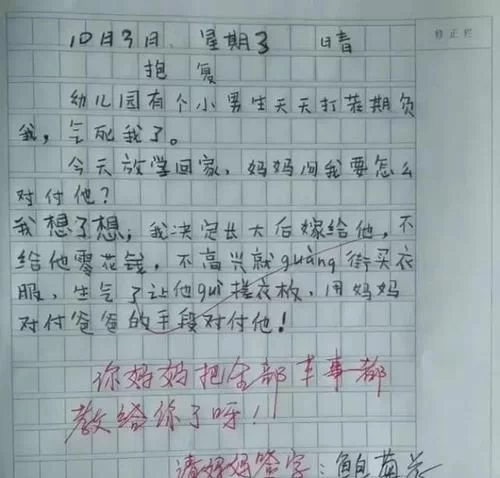 10月3日 星期3 晴
修正栏
抱复
幼儿园有个小男生天天打荖期负
我，气死我了。
今天放学回家，妈妈问我要怎么
对付他？
我想了想，我决定长大后嫁给他，不
给他零花钱，不高兴就guàng街买衣
服，生气了让他guì搓衣板，用妈妈
对付爸爸的手段对付他！
你妈妈把全部本事都
教给你了呀！
请妈妈签字：鲍菊